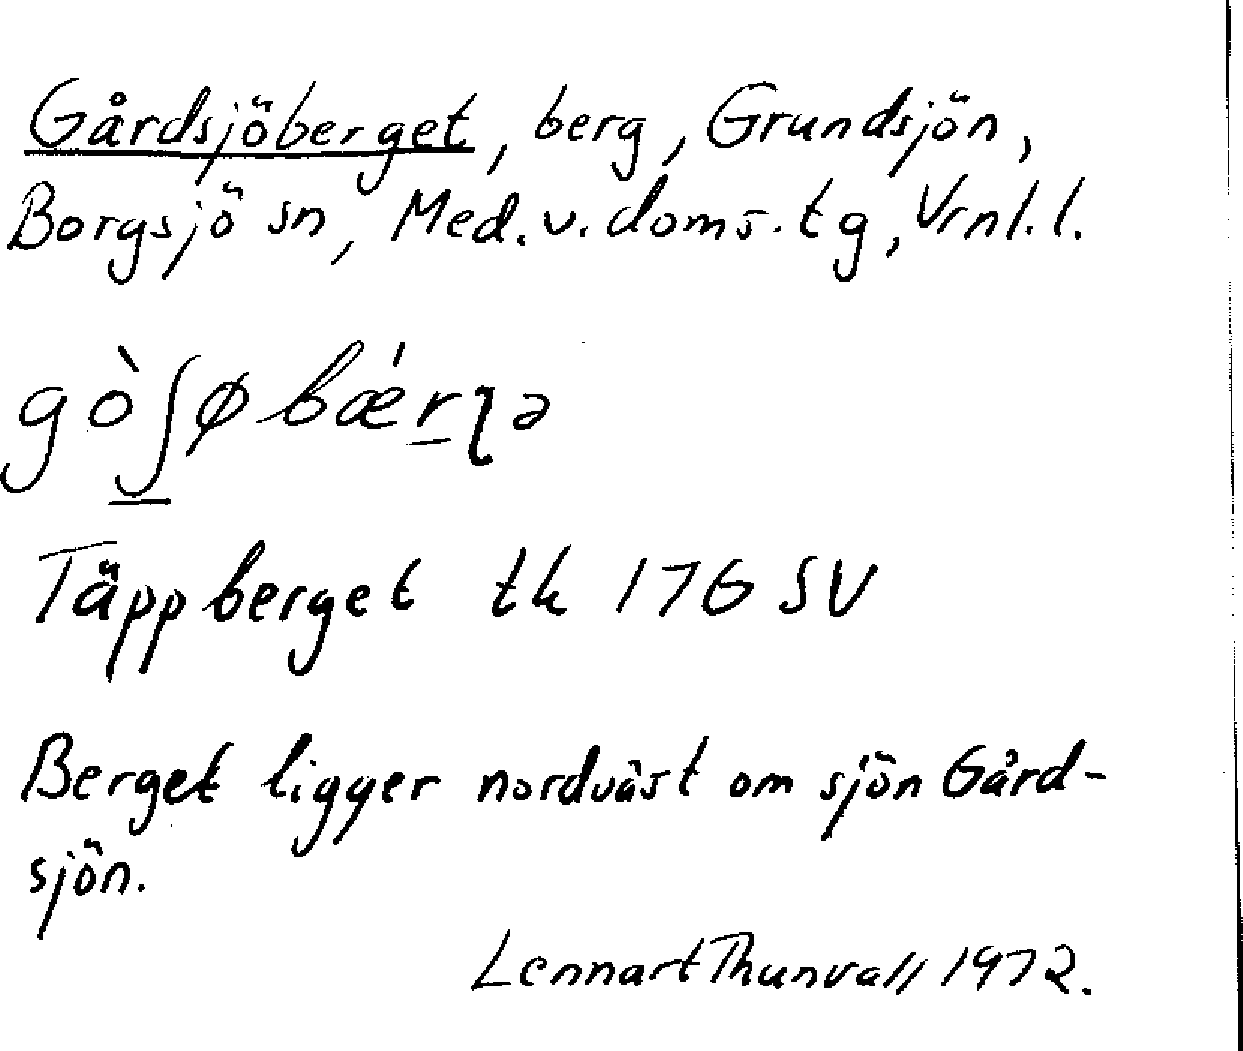 Gårdsjöberget, berg, Grundsjön,
Borgsjö sn, Med. v. doms. tg, Vrnl. l.
gòʃøbǽrʅə
Täppberget tk 17G SV
Berget ligger nordväst om sjön Gård-
sjön.
Lennart Thunvall 1972.